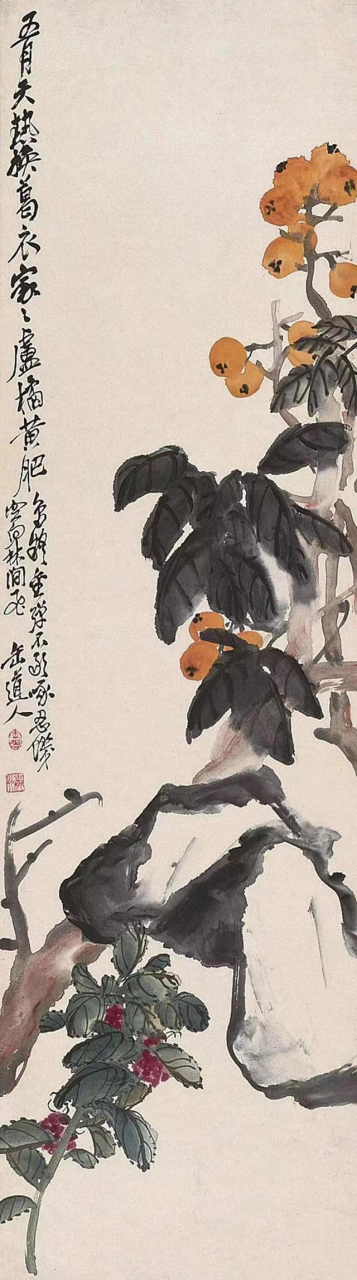 五月天熱換葛衣家〻盧橘黃肥
鳥疑金彈不敢啄忍饑
空向林間飛 缶道人